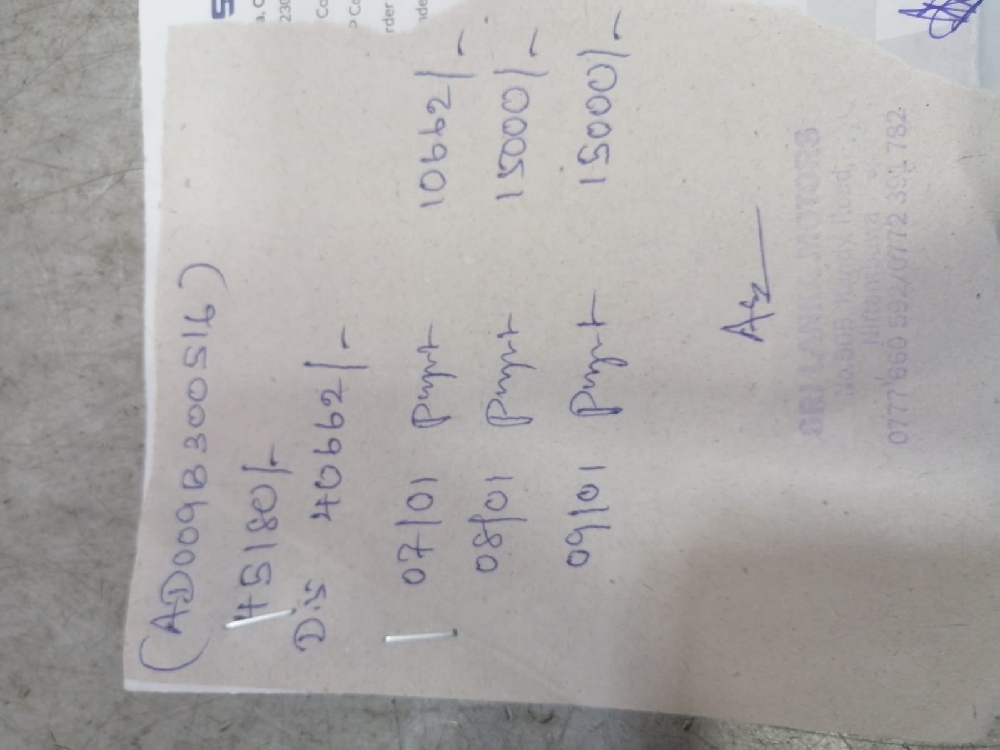 (AD009B300516)
45180/-
Dis 40662/-
07/01 Pmynt 10662/-
08/01 Pmynt 15000/-
09/01 Pmynt 15000/-
SRI LANKA MOTORS
Road,
Nittambuwa
07777 660 592/0772 391 782